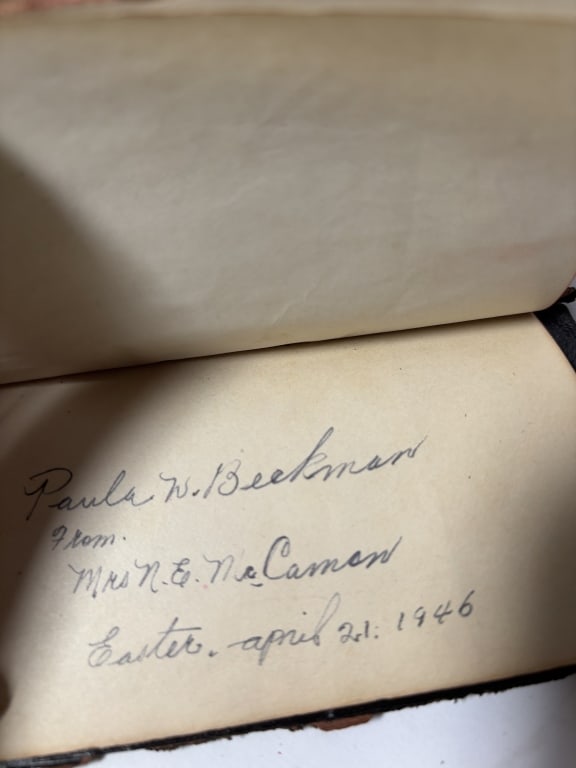 Paula W. Beekman
From.
Mrs N. E. McCamon
Easter. april 21. 1946